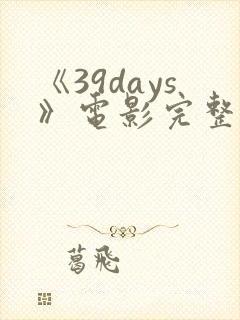 《39days
》電影完整
葛飛